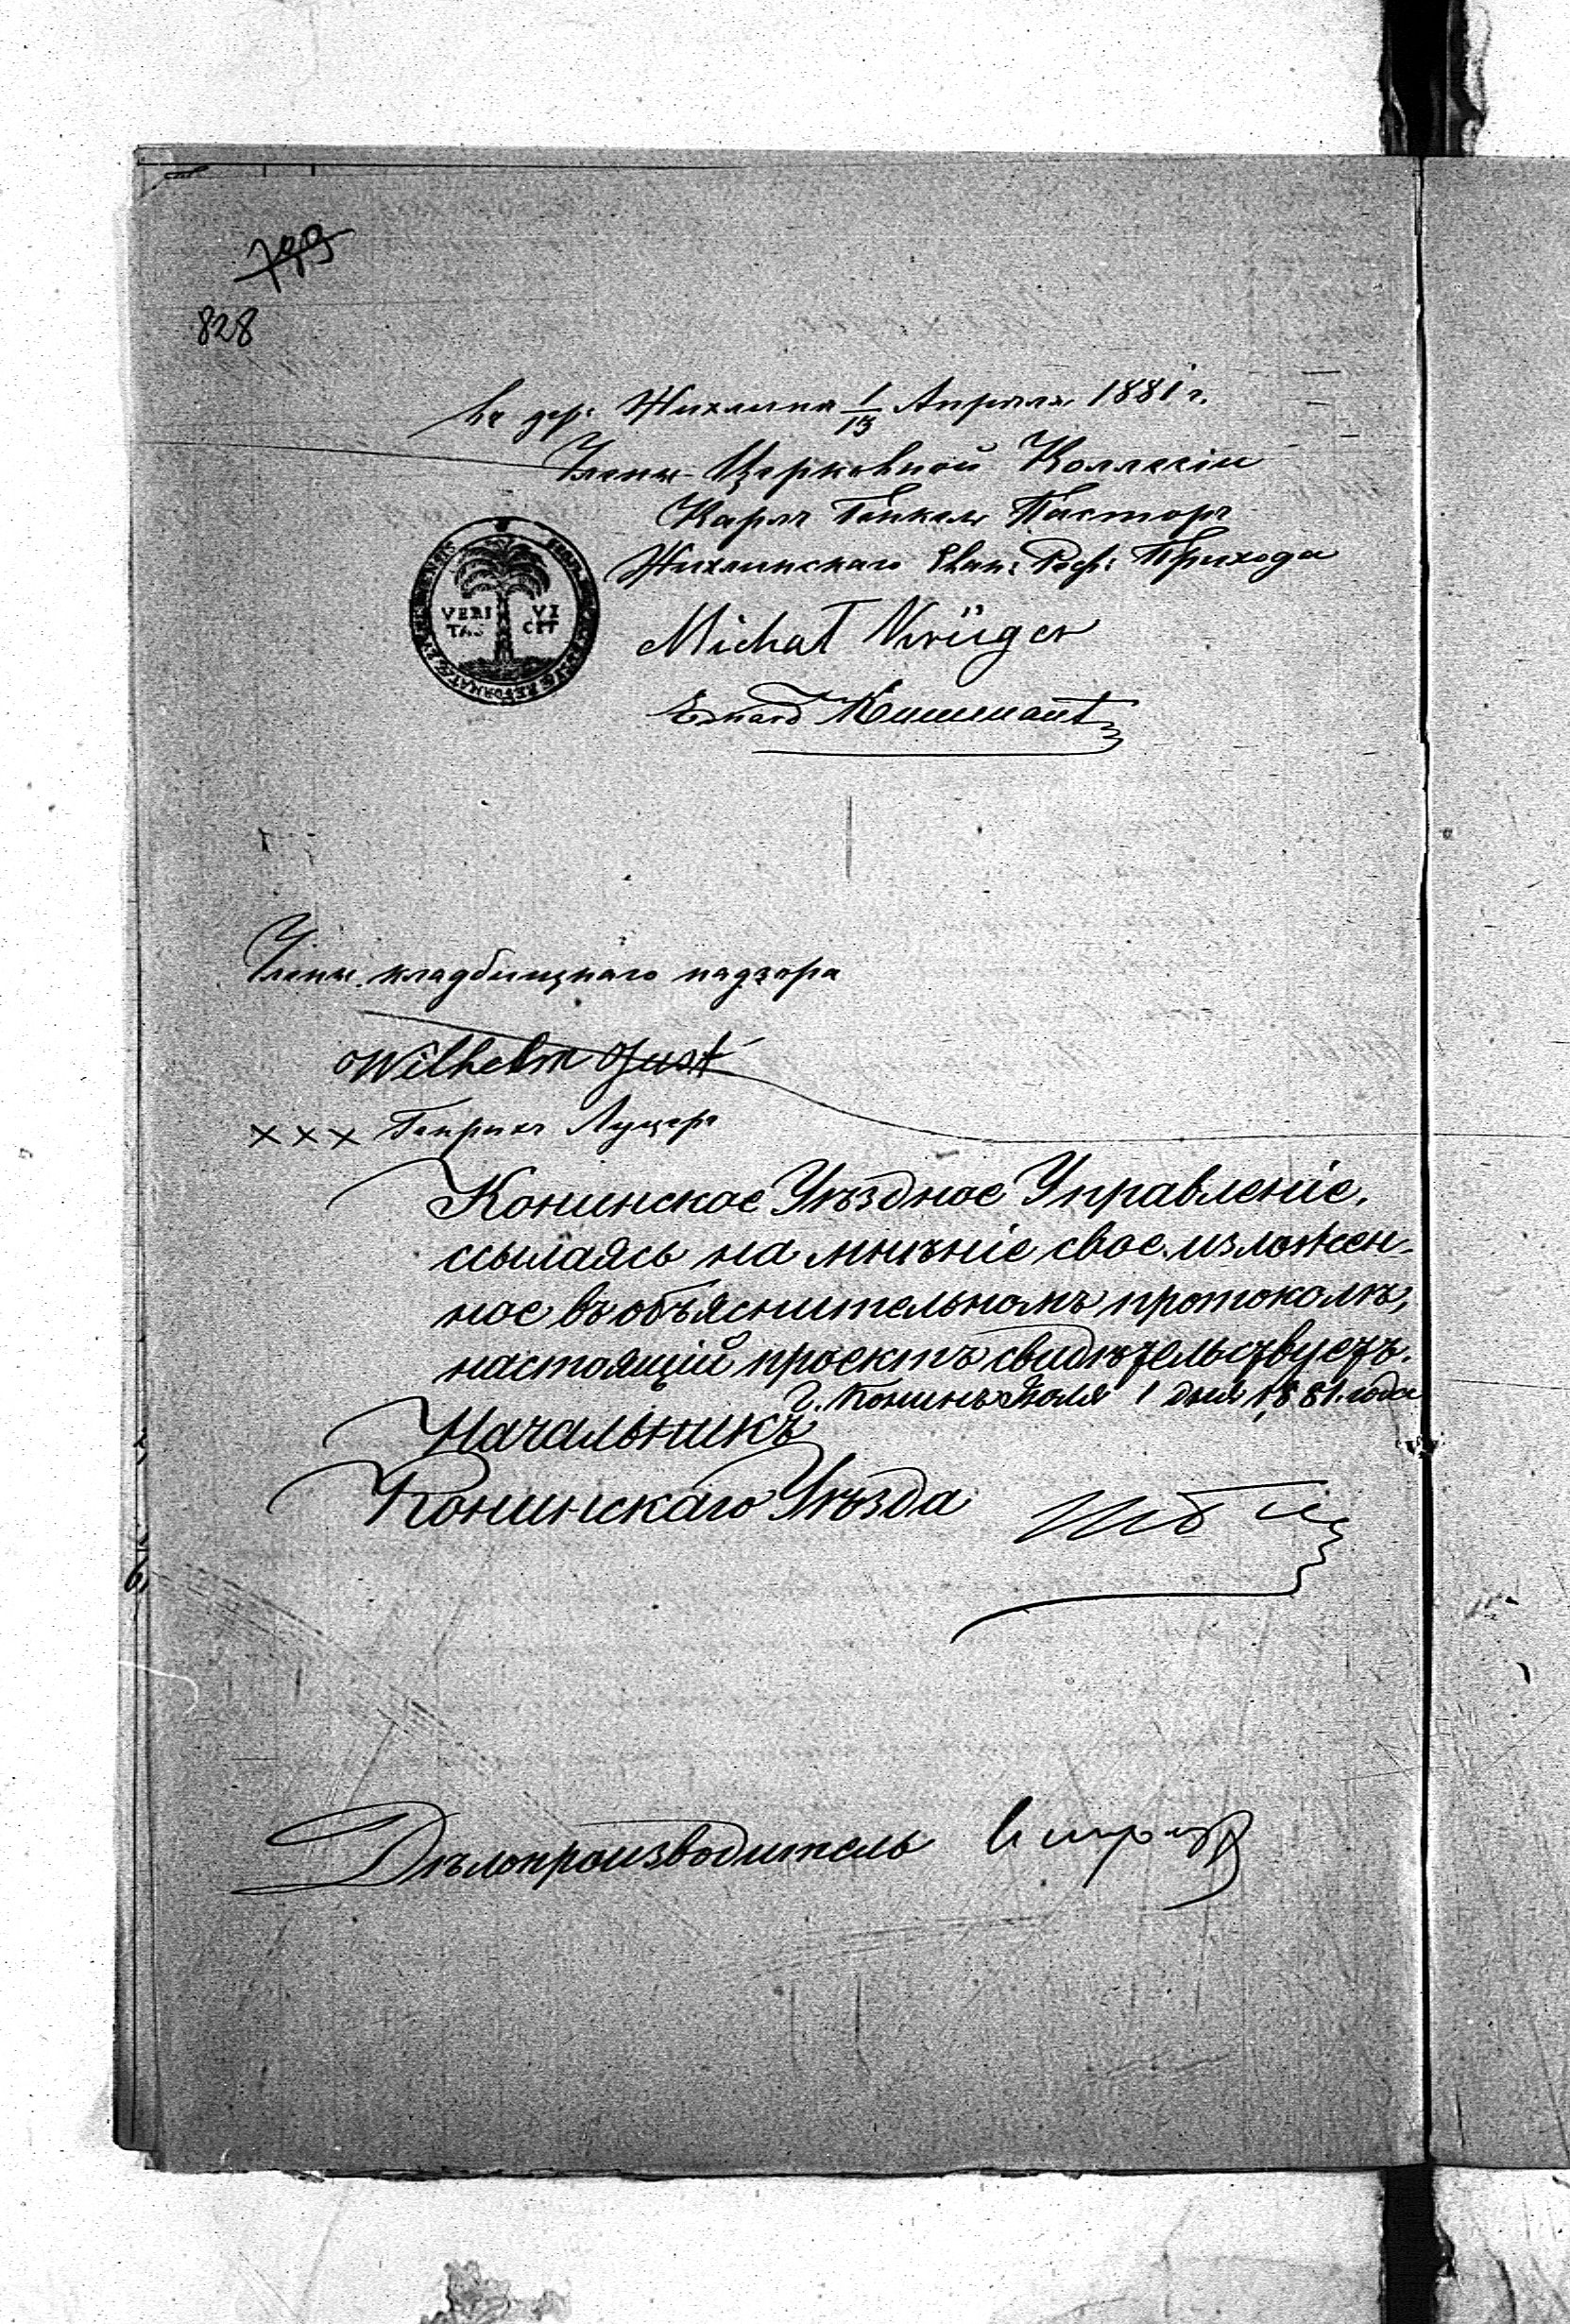 799
828
въ дер: Жихлина 1/13 Апрѣля 1881 г.
Члены Церковной Коллегіи
Карлъ Генкель Пасторъ
Жихлинскаго Еван: Реф: Прихода
VERITAS VICIT
Michał Krüger
Eduard
Члены кладбищнаго надзора
Wilhelm Just
xxx Генрихъ Луцеръ
Конинское Уѣздное Управленіе,
ссылаясь на мнѣніе свое изложен-
ное въ объяснительномъ протоколѣ,
настоящій проектъ свидѣтельствуетъ.
г. Конинъ Іюля 1 дня 1881 года
Начальникъ
Конинскаго Уѣзда
Дѣлопроизводитель